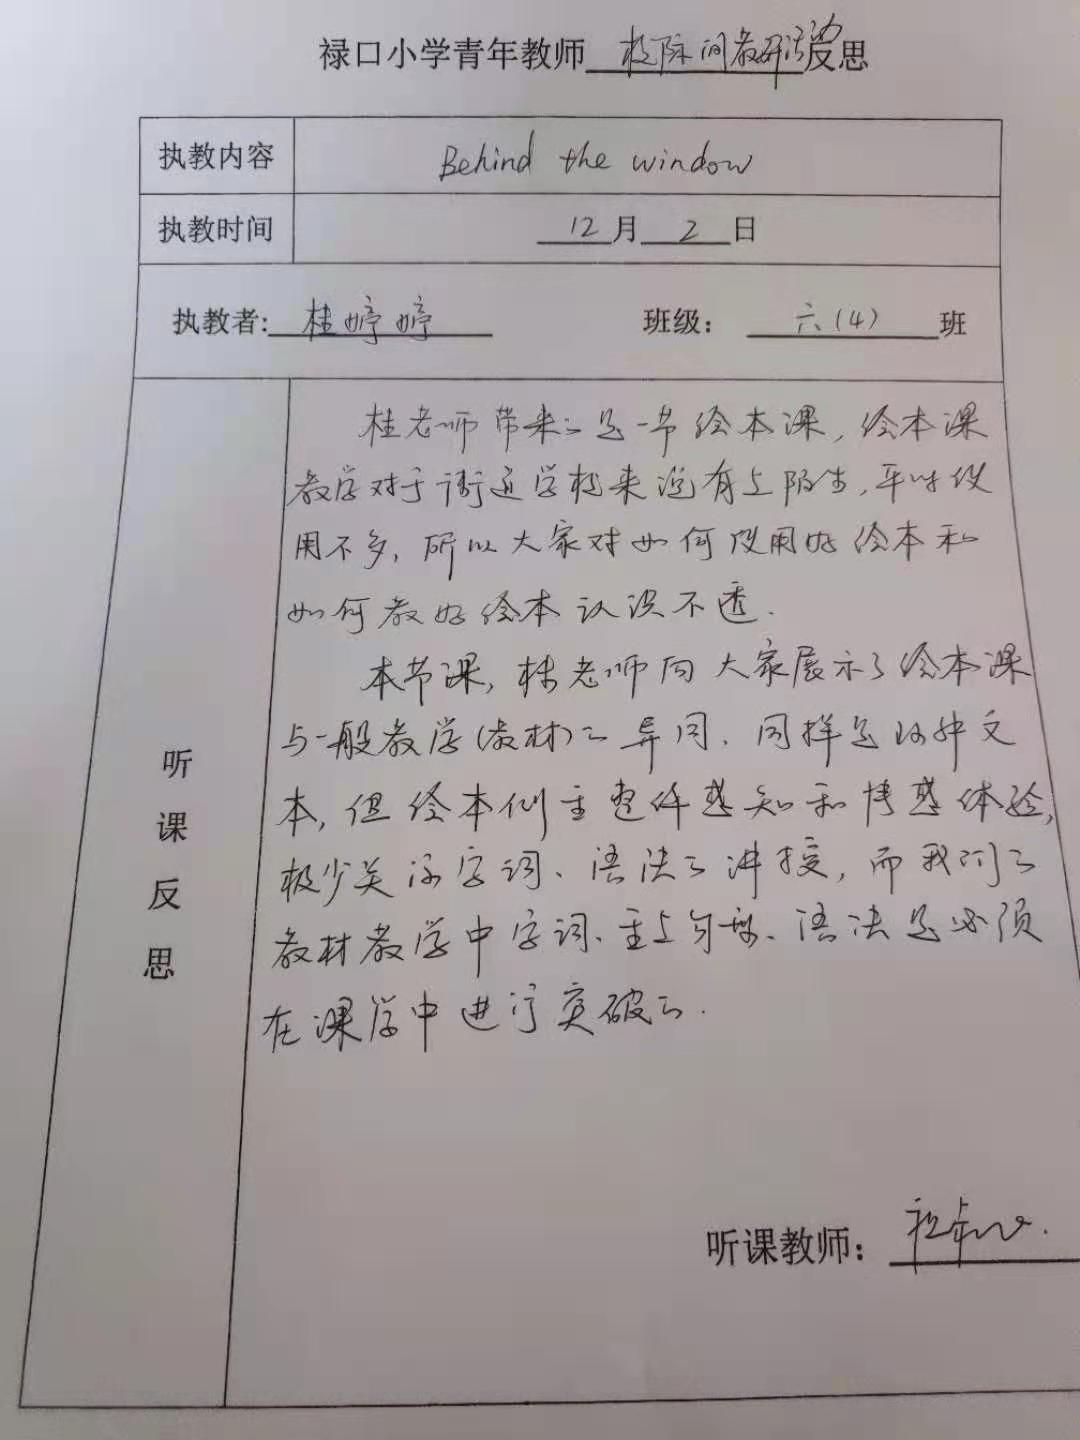 禄口小学青年教师 校际间教研活动 反思
执教内容 Behind the window
执教时间 12月2日
执教者: 桂婷婷 班级: 六(4) 班
听课反思
桂老师带来的是一节绘本课,绘本课
教学对于街道学校来说有点陌生,平时使
用不多,所以大家对如何使用好绘本和
如何教好绘本认识不透.
本节课,桂老师向大家展示了绘本课
与一般教学(教材)的异同.同样是以文
本,但绘本侧重整体感知和情感体验,
极少关注字词、语法的讲授,而我们的
教材教学中字词、重点句型、语法是必须
在课堂中进行突破的.
听课教师: